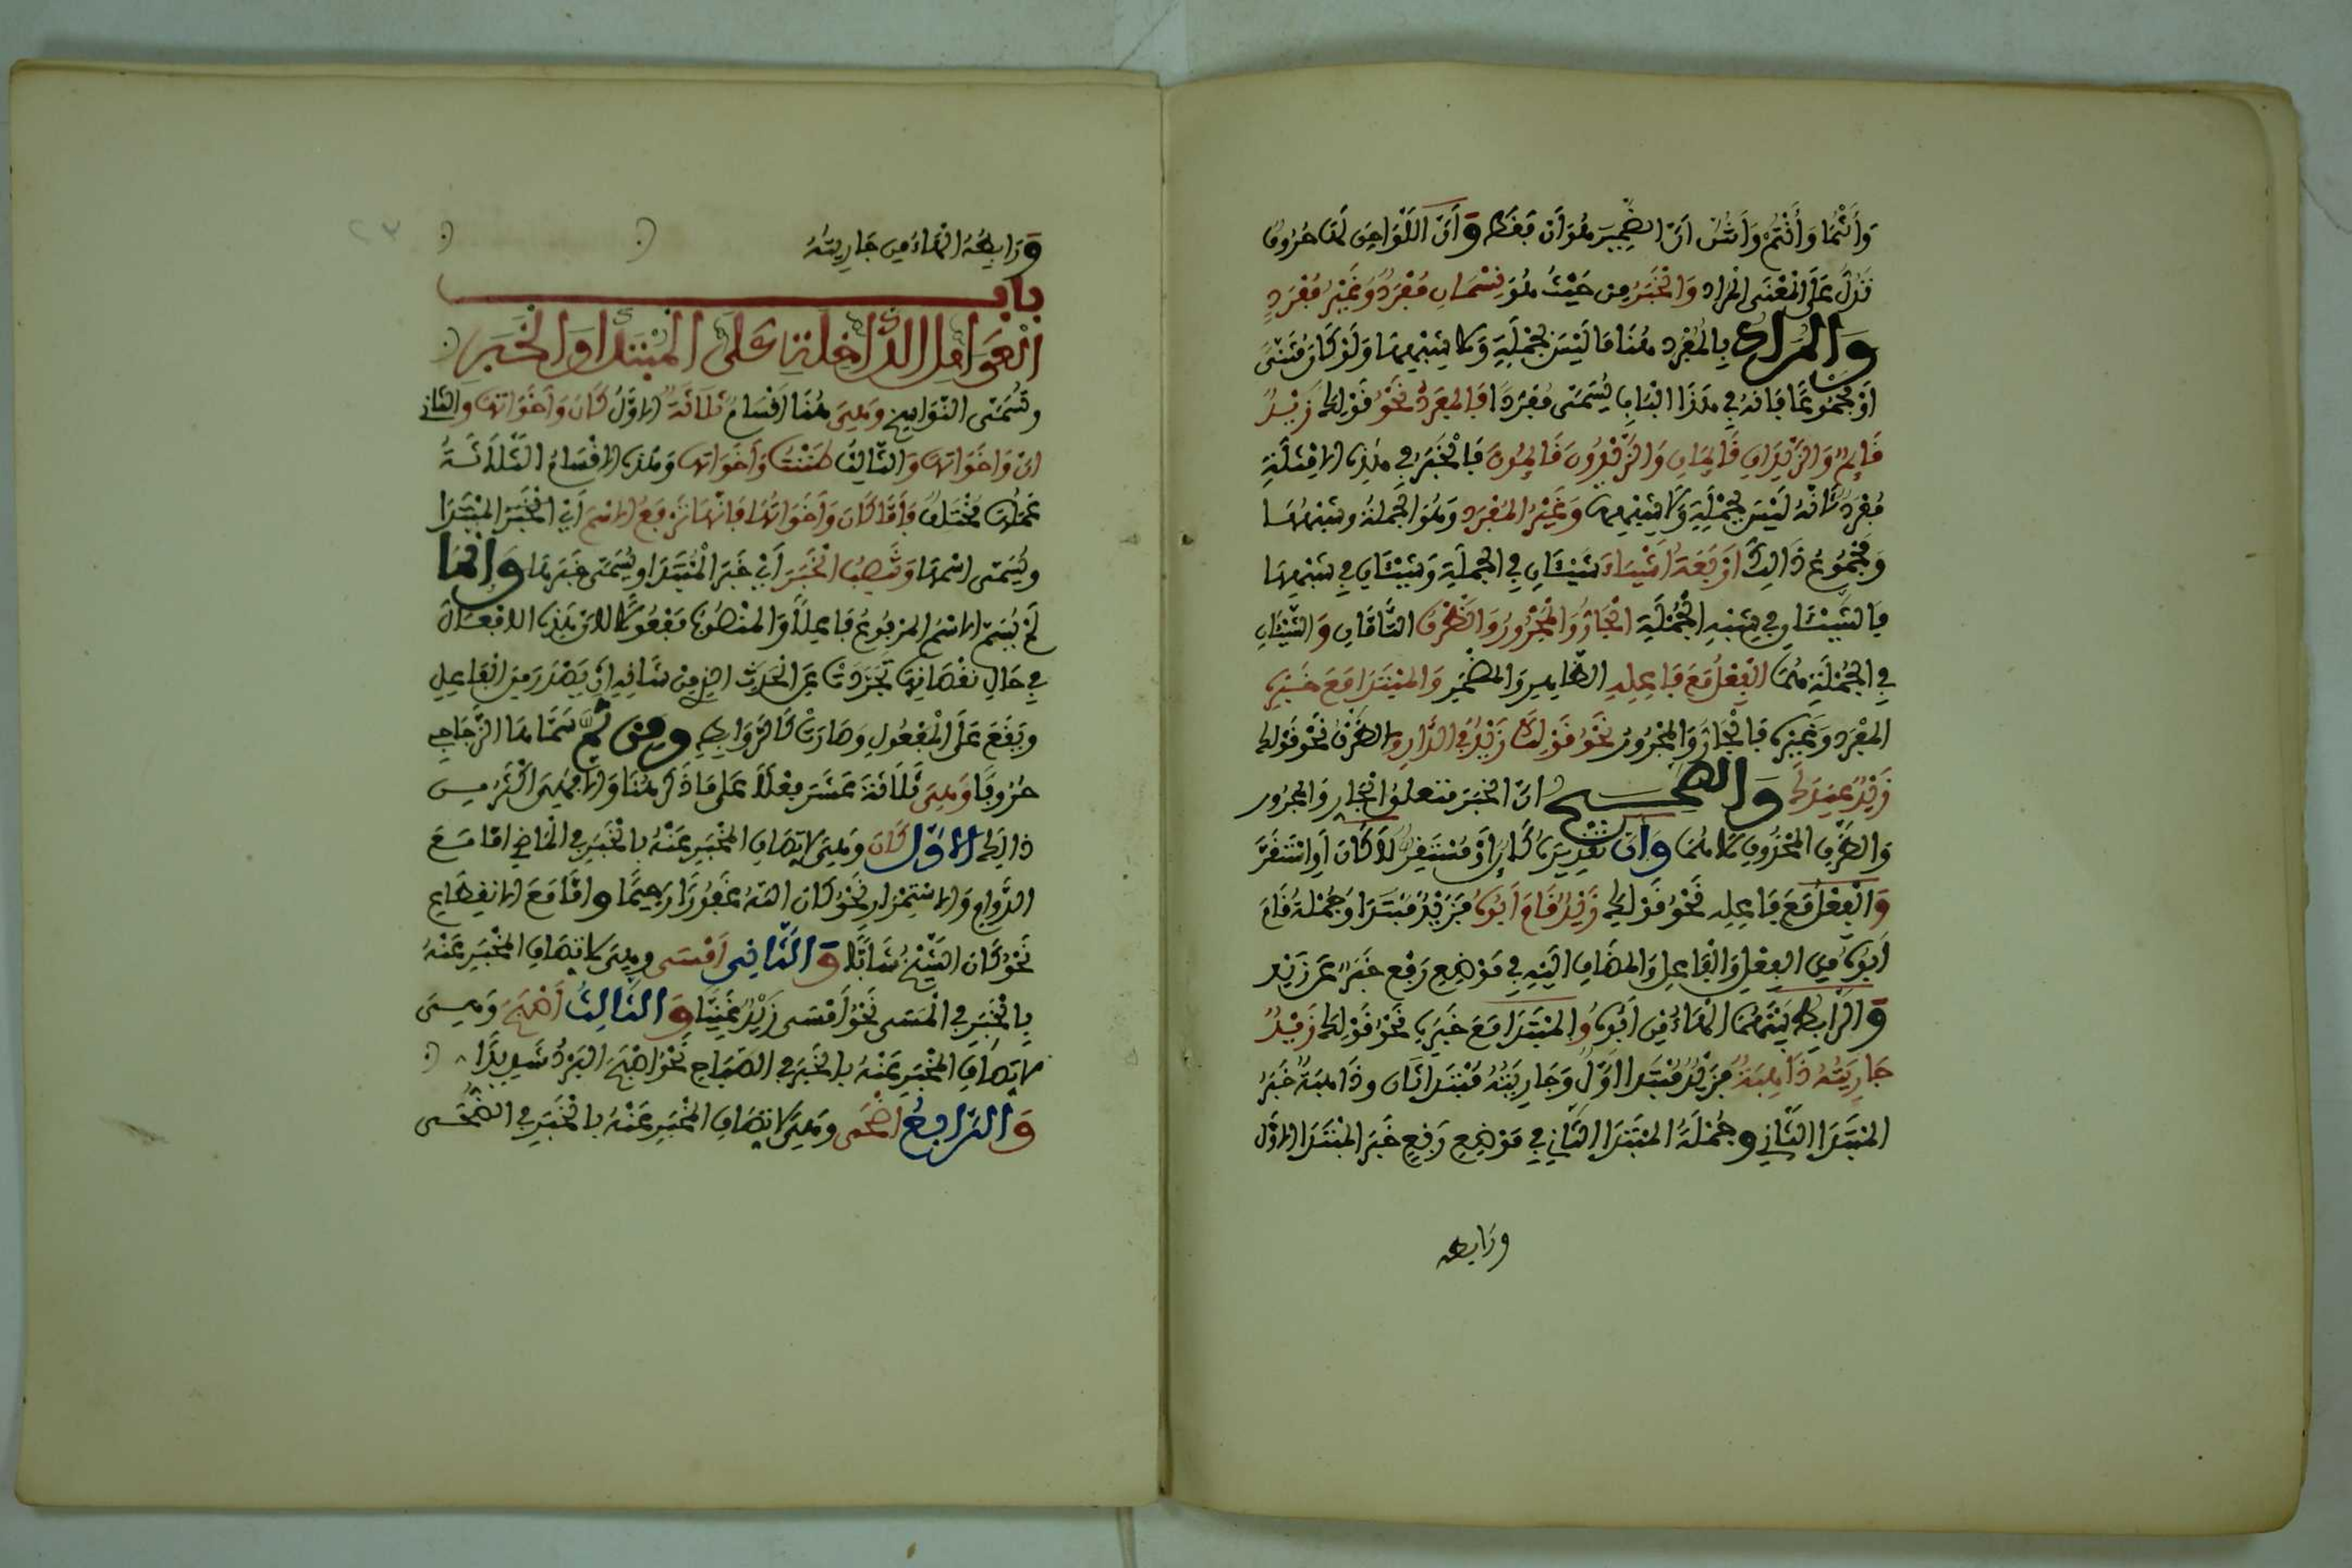 وَأَنْتُمَا وَأَنْتُمْ وَأَنْتُنَّ أنّ الضَّمِيرَ هُوَ أَنْ فَقَطْ وَأَنَّ اللَّوَاحِقَ لَهَا حُرُوفٌ
تَدُلُّ عَلَى الْمَعْنَى المُرَادِ وَالْخَبَرُ مِن حَيْثُ هُوَ قِسْمَانِ مُفْرَدٌ وَغَيْرُ مُفْرَدٍ
وَالْمُرَادُ بِالْمُفْرَدِ هُنَا مَا لَيْسَ بِجُمْلَةٍ وَلَا شَبِيهِهَا وَلَوْ كَانَ مُثَنًّى
أوْ مَجْمُوعًا فَإنهُ فِي هَذَا الْبَابِ يُسَمَّى مُفْرَدًا فَالْمُفْرَدُ نَحْوُ قَوْلِكَ زَيْدٌ
قَائِمٌ وَالزَّيْدَانِ قَائِمَانِ وَالزَّيْدُونَ قَائِمُونَ فَالْخَبَرُ فِي هَذِهِ الامْثِلَةِ
مُفْرَدٌ لأَنَّهُ لَيْسَ بِجُمْلَةٍ وَلَا شَبِيهِهَا وَغَيْرُ المُفْرَدِ وَهُوَ الجُمْلَةُ وشَبِيهُهَا
وَمَجْمُوعُ ذَالِكَ أرْبَعَةُ أشْيَاءَ شَيْئَانِ فِي الجُمْلَةِ وَشَيْئَانِ فِي شَبِيهِهَا
فَالشَّيْئَانِ فِي شِبْهِ الْجُمْلَةِ الْجَارُّ وَالْمَجْرُورُ وَالظَّرْفُ التَّامَّانِ وَالشَّيْئَانِ
فِي الجُمْلَةِ هُمَا الْفِعْلُ مَعَ فَاعِلِهِ الظَّاهِرِ وَالمُضْمَرِ وَالمُبْتَدَا مَعَ خَبَرِهِ
المُفْرَدِ وَغَيْرِهِ فَالْجَارُّ وَالمَجْرُورُ نَحْوُ قَوْلِكَ زَيْدٌ فِي الدَّارِ وَالظَّرْفُ نَحْوُ قَوْلِكَ
زَيْدٌ عِنْدَكَ وَالصَّحِيحُ أنّ الخَبَرَ متعلقُ الْجَارِ وَالمَجْرُورِ
وَالظَّرْفِ المَحْذُوفِ لا هُمَا وَأنَّ تَقْدِيرَهُ كَائِنٌ أوْ مُسْتَقِرٌّ لَا كَانَ أَوِ اسْتَقَرَّ
وَالْفِعْلُ مَعَ فَاعِلِهِ نَحْوُ قَوْلِكَ زَيْدٌ قَامَ أبُوهُ فَزَيْدٌ مُبْتَدَا وَجُمْلَةُ قَامَ
أَبُوهُ مِن الفِعْلِ وَالْفَاعِلِ وَالمُضَافِ الَيْهِ فِي مَوْضِعِ رَفْعِ خَبَرٌ عَن زَيْدٍ
وَالرَّابِطُ بَيْنَهُمَا الهَاءُ مِن أبُوهُ وَالمُبْتَدَا مَعَ خَبَرِهِ نَحْوُ قَوْلِكَ زَيْدٌ
جَارِيَتُهُ ذَاهِبَةٌ فَزَيْدٌ مُبْتَدَا اوَّلٌ وَجَارِيَتُهُ مُبْتَدَا ثَانٍ وذَاهِبَةٌ خَبَرُ
المُبْتَدَا الثَّانِي وجُمْلَةُ المُبْتَدَا الثَّانِي فِي مَوْضِعِ رَفْعِ خَبَر المُبْتَدَا الاوّل
ورابطه
وَرَابِطُهُ الْهَاءُ مِن جَارِيَتُهُ
باب
الْعَوَامِل الدَّاخِلَةِ عَلَى المُبْتَدَا وَالْخَبَرِ
وتُسَمَّى النَّوَاسِخ وَهِيَ هُنَا أقْسَامٌ ثَلَاثَةٌ الاوّلُ كَانَ وَأخَوَاتهَا وَالثَّانِي
انّ وَأخَوَاتهَا وَالثَّالِثُ ظَنَنْتُ وَأخَوَاتهَا وَهَذِهِ الاقْسَامُ الثَّلَاثَةُ
عَمَلُهَا مُخْتَلِفٌ فَأمَّا كَانَ وَأخَوَاتُهَا فَإنَّهَا تَرْفَعُ الاسْمَ أيْ الْخَبَرَ المُبْتَدَا
ويُسَمَّى اسْمهَا وَتَنْصِبُ الْخَبَرَ أيْ خَبَرَ الْمُبْتَدَا ويُسَمَّى خَبَرهَا وَإنَّمَا
لَمْ يُسَمَّ الاسْمُ المَرْفُوعُ فَاعِلًا وَالمَنْصُوبُ مَفْعُولًا لانّ هَذِهِ الافْعَالَ
فِي حَالِ نُقْصَانِهَا تَجَرَّدَتْ عَنِ الْحَدَثِ الذِي مِنْ شَانِهِ أنْ يَصْدُرَ مِنَ الْفَاعِلِ
ويَقَعَ عَلَى الْمَفْعُولِ وَصَارَتْ كَالرَّوَابِطِ ومِنْ ثَمَّ سَمَّاهَا الزَّجَّاجِي
حُرُوفًا وَهِيَ ثَلَاثَةَ عَشَرَ فِعْلًا عَلَى مَا ذَكَرَ هُنَا وَالا فَهِيَ اكْثَرُ مِن
ذالِكَ الاوّل كَانَ وَهِيَ لاتِّصَافِ المُخْبَرِ عَنْهُ بِالْخَبَرِ فِي المَاضِي امَّا مَعَ
الدَّوَامِ وَالاسْتِمْرَارِ نَحْوُ كَانَ اللهُ غَفُورًا رَحِيمًا وامَّا مَعَ الانْقِطَاعِ
نَحْوُ كَانَ الشَّيْخُ شَابًّا وَالثَّانِي أمْسَى وهِيَ لاتِّصَافِ المُخْبَرِ عَنْهُ
بِالْخَبَرِ فِي الْمَسَى نَحْوُ أَمْسَى زَيْدٌ غَنِيًّا وَالثَّالِثُ أصْبَحَ وَهِيَ
لاتِّصَافِ المُخْبَرِ عَنْهُ بِالخَبَرِ فِي الصَّبَاحِ نَحْوُ اصْبَحَ البَرْدُ شَدِيدًا
وَالرَّابِعُ أضْحَى وَهِيَ لاتِّصَافِ المُخْبَرِ عَنْهُ بِالْخَبَرِ فِي الضُّحَى